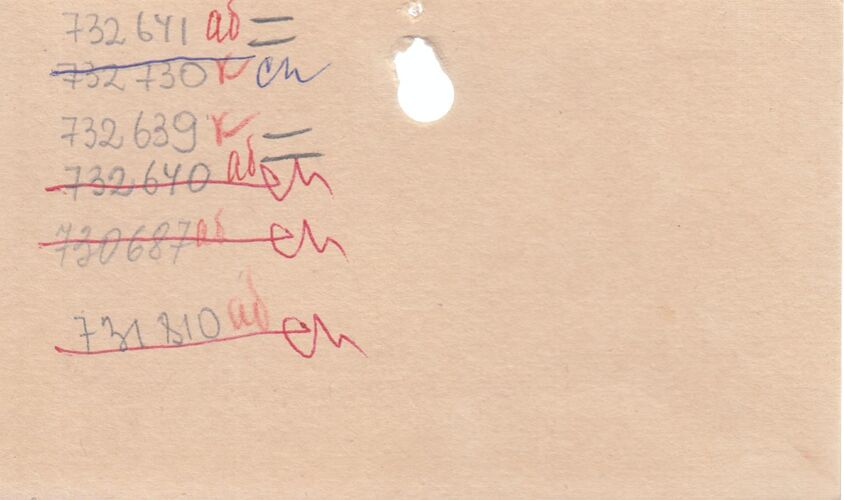 732641 аб =
732730 ч сп
732639 ч =
732640 аб сп
730687 аб сп
731810 аб сп